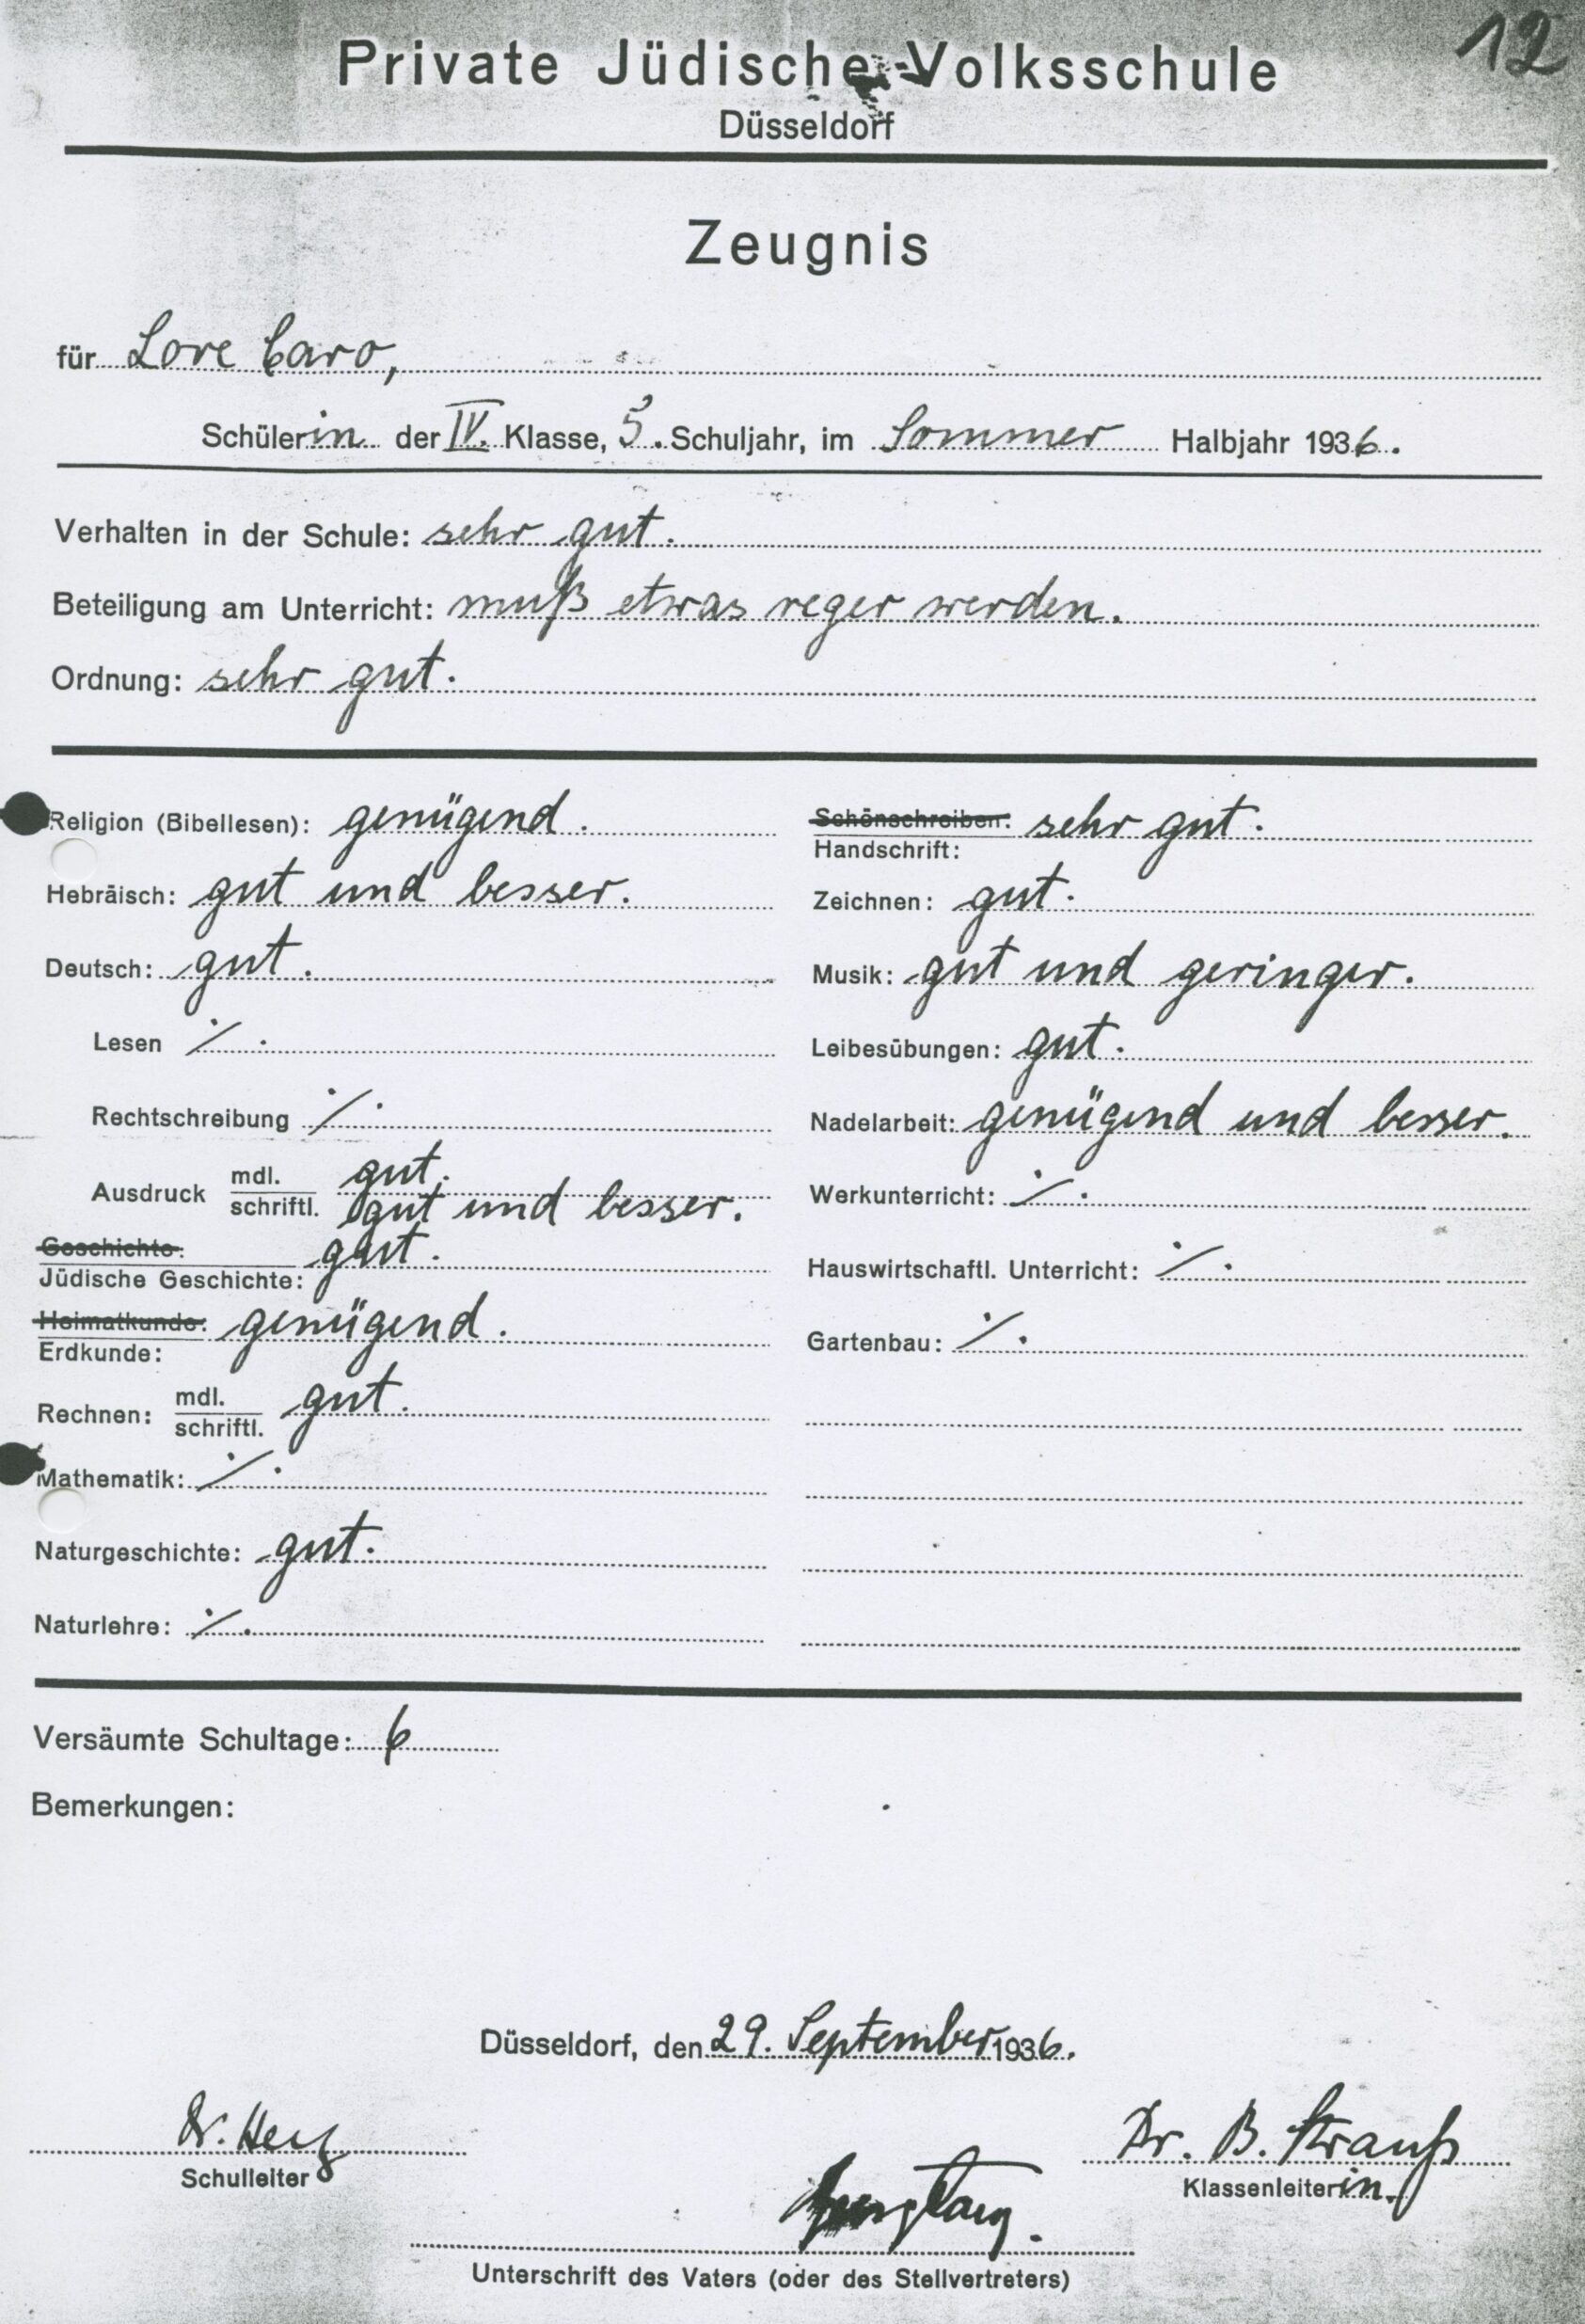 12
Private Jüdische Volksschule
Düsseldorf
Zeugnis
für Lore Caro,
Schülerin der IV. Klasse, 5. Schuljahr, im Sommer Halbjahr 1936.
Verhalten in der Schule: sehr gut.
Beteiligung am Unterricht: muß etwas reger werden.
Ordnung: sehr gut.
Religion (Bibellesen): genügend.
Hebräisch: gut und besser.
Deutsch: gut.
Lesen ⁒.
Rechtschreibung ⁒.
Ausdruck mdl. gut.
schriftl. gut und besser.
Geschichte: gut.
Jüdische Geschichte:
Heimatkunde: genügend.
Erdkunde:
Rechnen: mdl. gut.
schriftl.
Mathematik: ⁒.
Naturgeschichte: gut.
Naturlehre: ⁒.
Schönschreiben: sehr gut.
Handschrift:
Zeichnen: gut.
Musik: gut und geringer.
Leibesübungen: gut.
Nadelarbeit: genügend und besser.
Werkunterricht: ⁒.
Hauswirtschaftl. Unterricht: ⁒.
Gartenbau: ⁒.
Versäumte Schultage: 6
Bemerkungen:
Düsseldorf, den 29. September 1936.
Dr. Herz
Schulleiter
Dr. B. Strauß
Klassenleiterin.
Unterschrift des Vaters (oder des Stellvertreters)